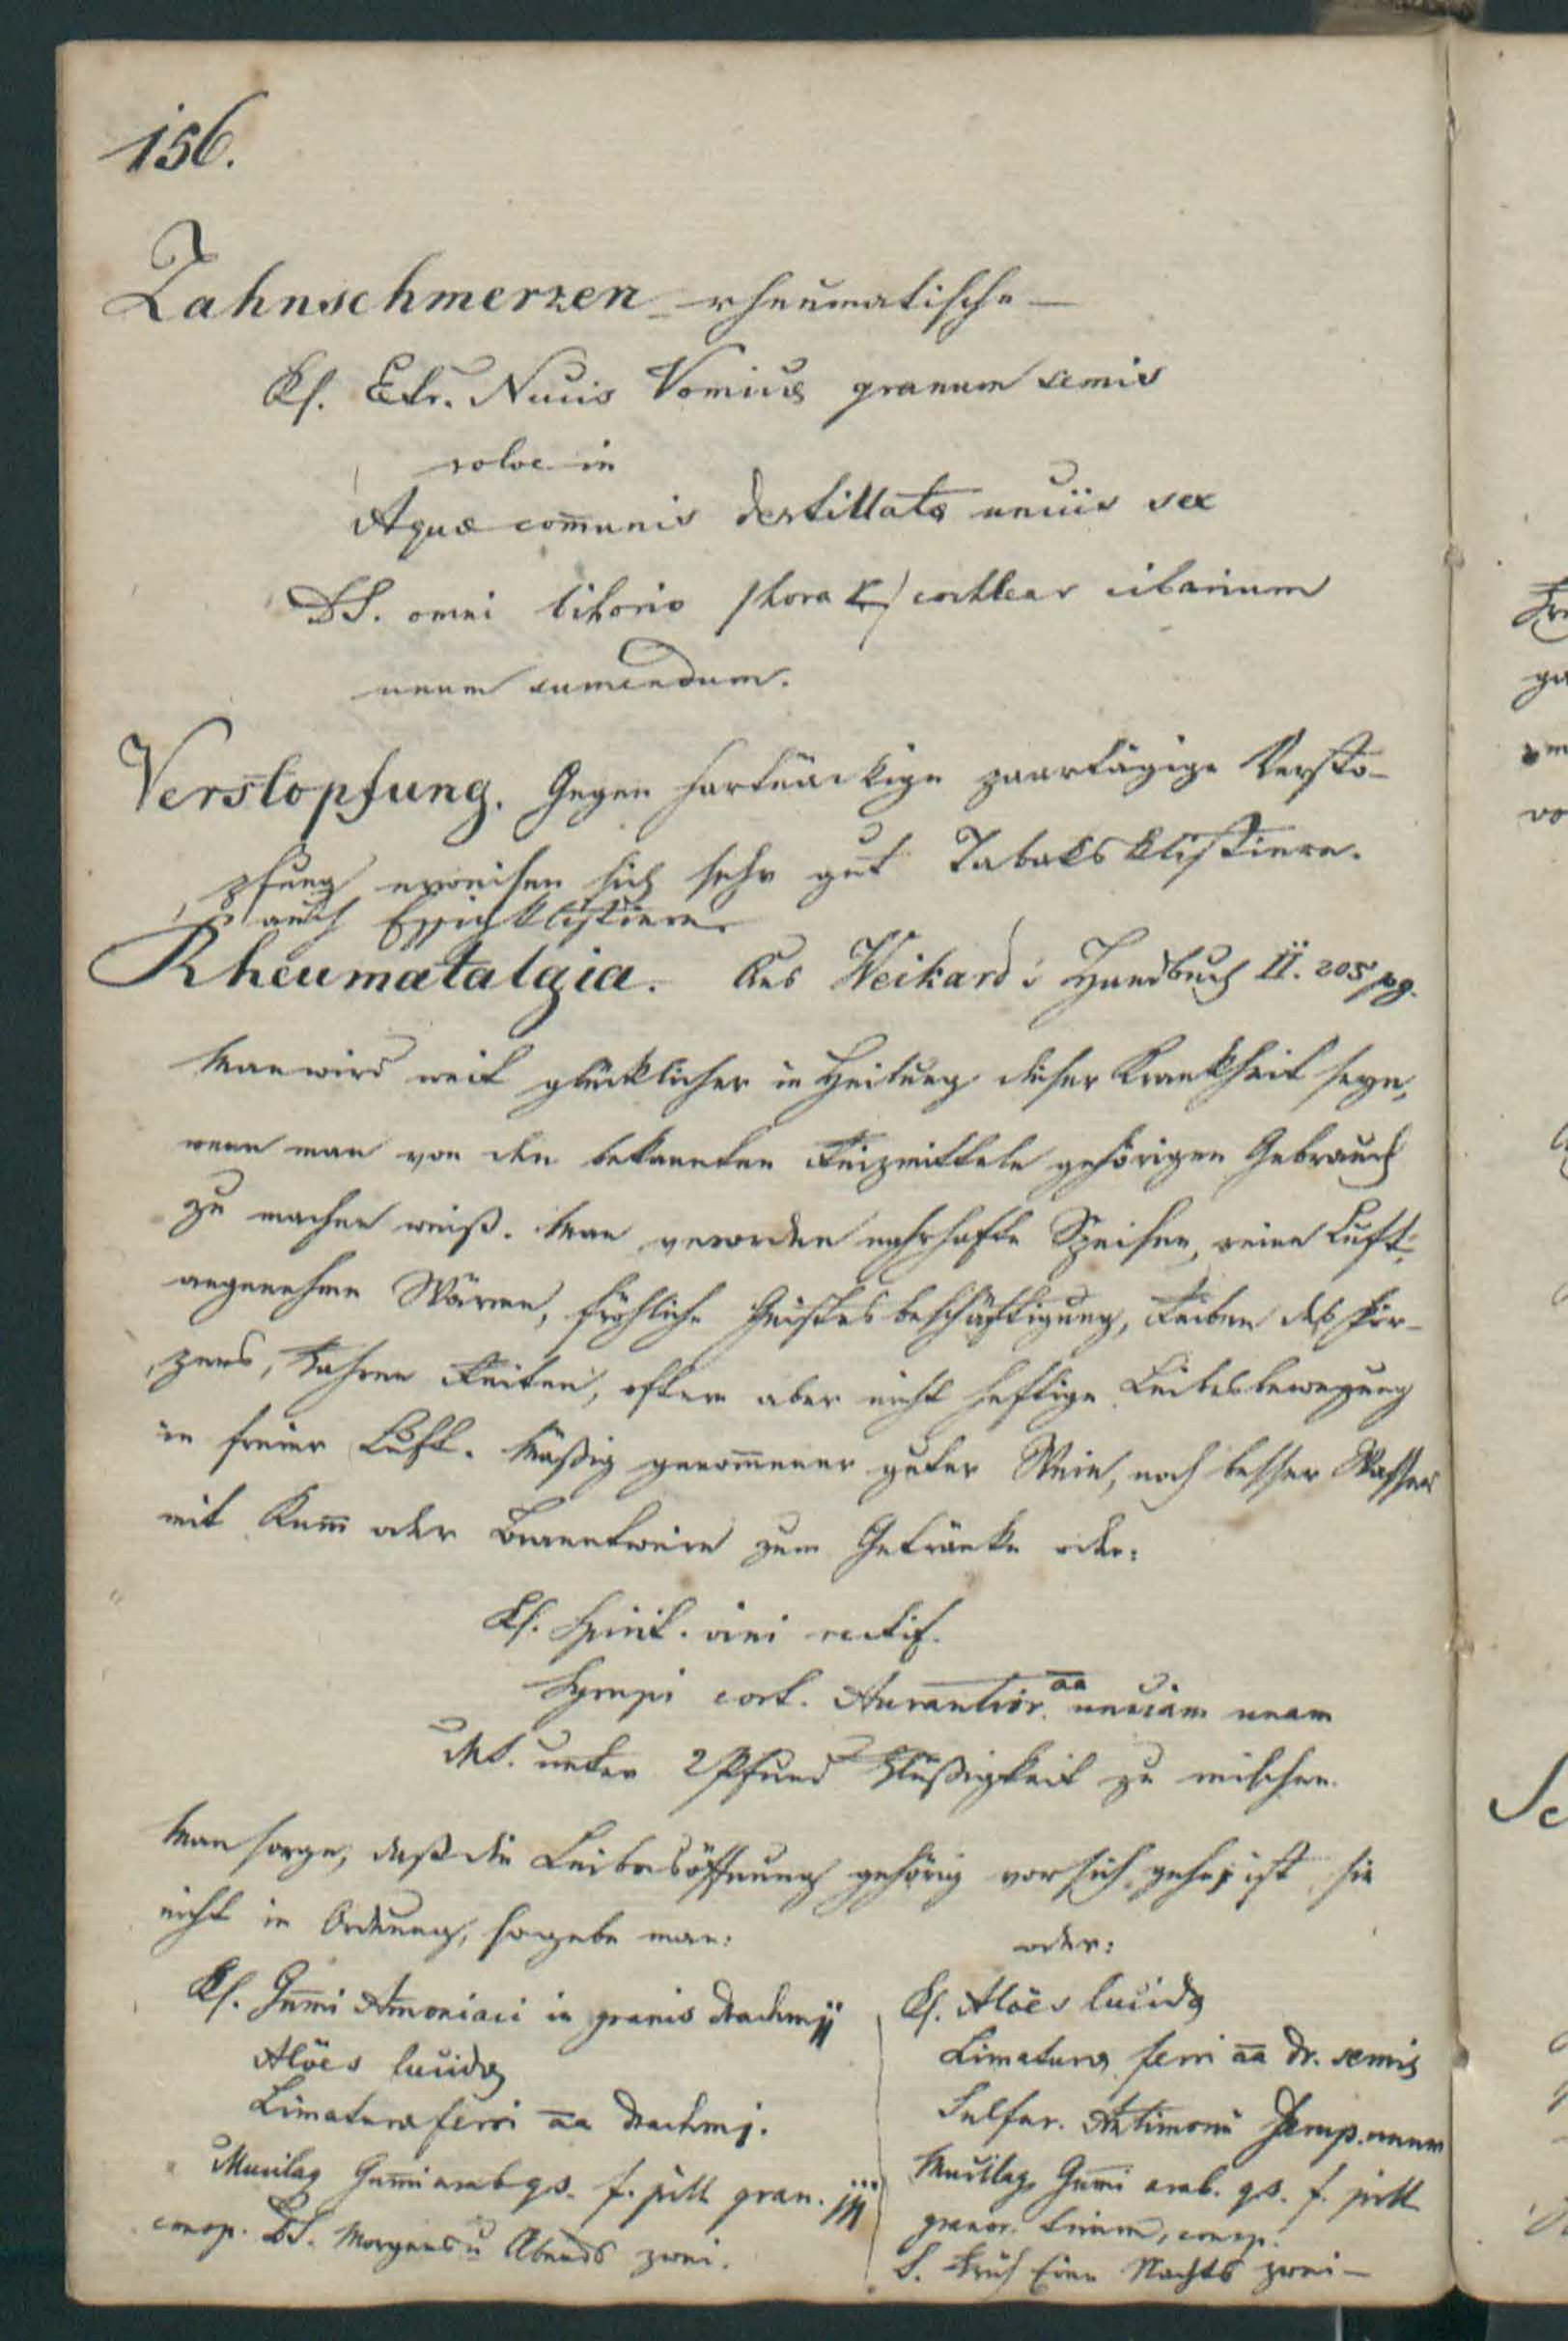 156.
Zahnschmerzen rheumatische —
Rf. Extr. Nucis Vomicæ granum semis
solve in
Aquæ com̄unis destillatæ unciis sex
DS. omni bihorio /hora / cochlear cibarium
unum sumendum.
Verstopfung. Gegen hartnäckige Versto-
pfung erweisen sich sehr gut Tabaksklistiere.
auch Essigklistiere
Rheumatalgia. Aus Weikard's Handbuch II. 205 pg.
Man wird weit glücklicher in Heilung dieser Krankheit seyn,
wenn man von den bekannten Reizmitteln gehörigen Gebrauch
zu machen weiß. Man nahrhafte Speisen, reine Luft,
angenehme Wärme, fröhliche Geistesbeschäftigung, Reiben des Kör-
pers, Fahren Reiten, oftere aber nicht heftige Leibesbewegung
in freier Luft. Mäßig genom̄ener guter Wein, noch besser Wasser
mit Rum̄ oder Branntwein zum Getränke oder:
Rf. Spirit. vini rectif.
Syrupi cort. Aurantior. aa unciam unam
MS. unter 2 Pfund Flüßigkeit zu mischen.
Man sorge, daß die Leibesöffnung gehörig vor sich gehe; ist sie
nicht in Ordnung, so gebe man:
Rf. Gum̄i Am̄oniaci in granis drachm jj
Alöes lucidæ
Limaturæ ferri aa drachm j.
Mucilag Gum̄i arab qs. f. pill gran. jjj
consp. DS. Morgens u Abends zwei.
oder:
Rf. Alöes lucidæ
Limaturæ ferri aa dr. semis
Sulfur. Antimonii scrup. unum
Mucilag. Gum̄i arab. qs. f. pill
granor. trium, consp.
S. Früh Eine Nachts zwei —